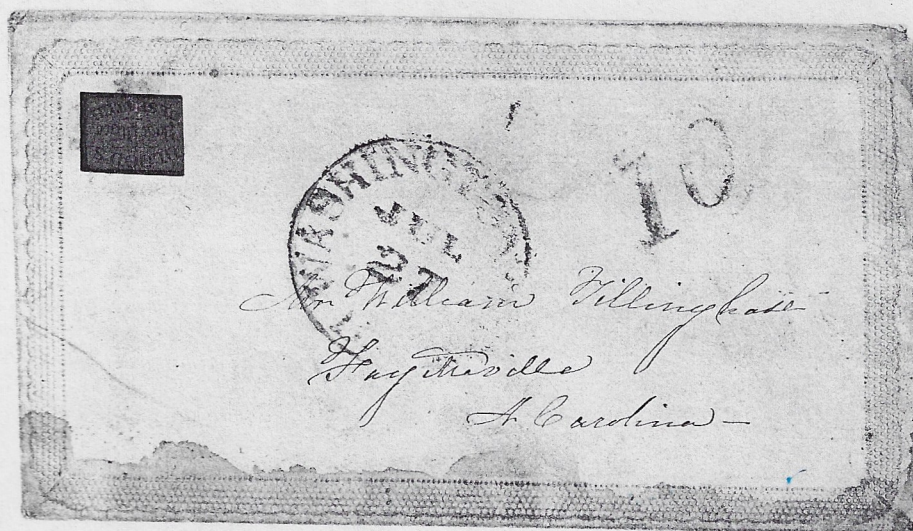 10
WASHINGTON
JUL
27
Mr William Tillinghast
Fayetteville
N. Carolina